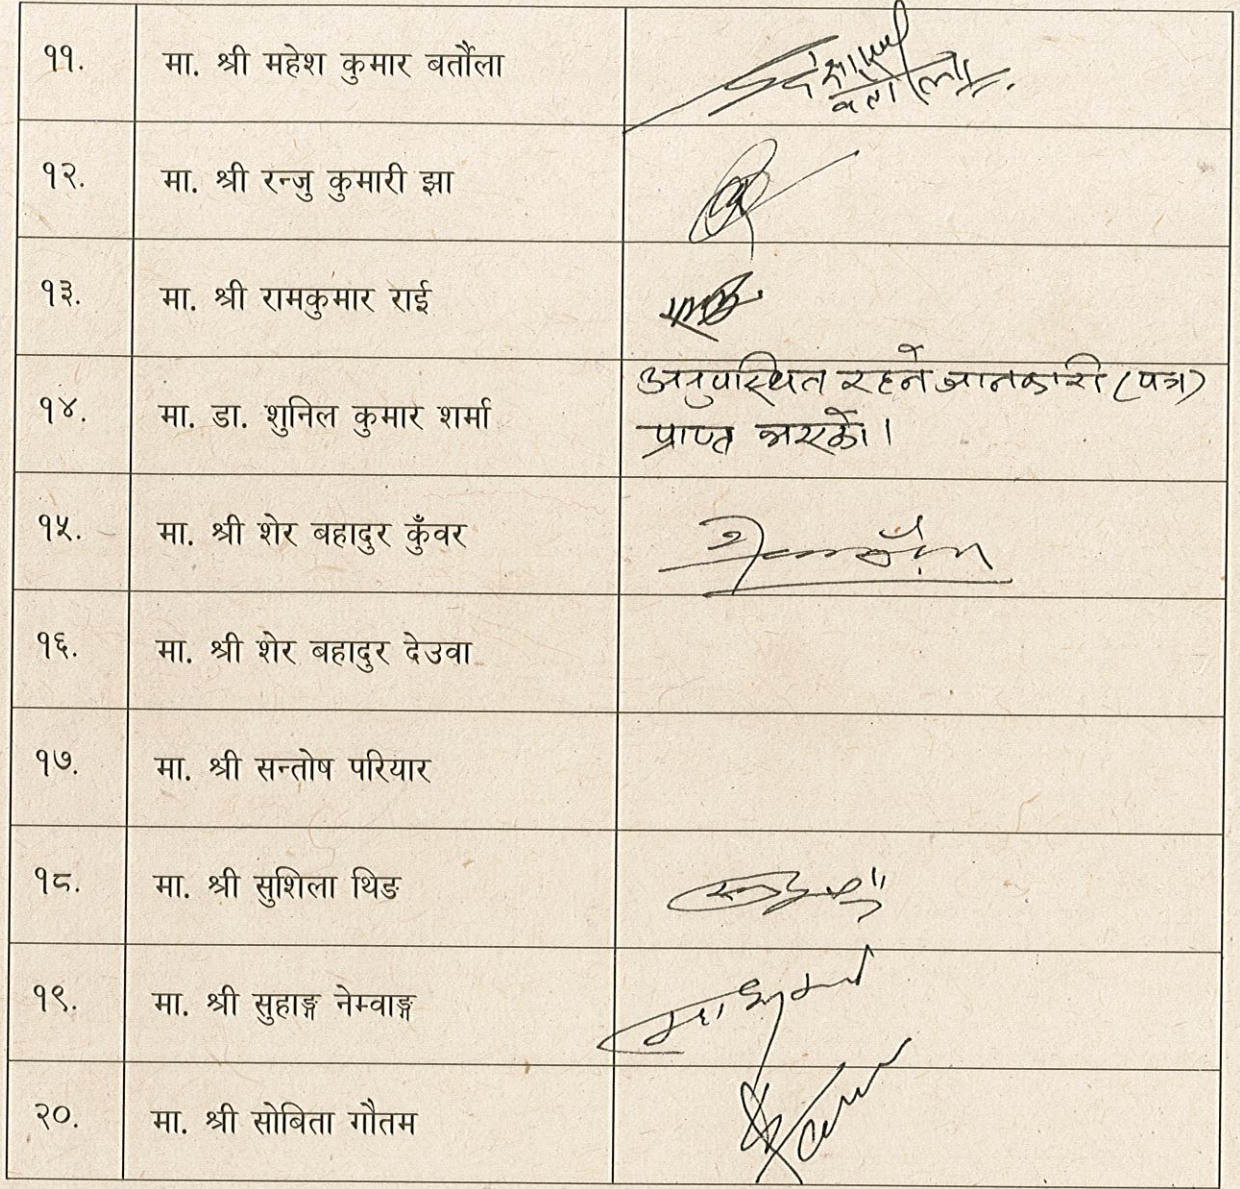 ११. मा. श्री महेश कुमार बर्तौला
१२. मा. श्री रन्जु कुमारी झा
१३. मा. श्री रामकुमार राई
१४. मा. डा. शुनिल कुमार शर्मा अनुपस्थित रहने जानकारी (पत्र)
प्राप्त भएको।
१५. मा. श्री शेर बहादुर कुँवर
१६. मा. श्री शेर बहादुर देउवा
१७. मा. श्री सन्तोष परियार
१८. मा. श्री सुशिला थिङ
१९. मा. श्री सुहाङ्ग नेम्वाङ्ग
२०. मा. श्री सोबिता गौतम